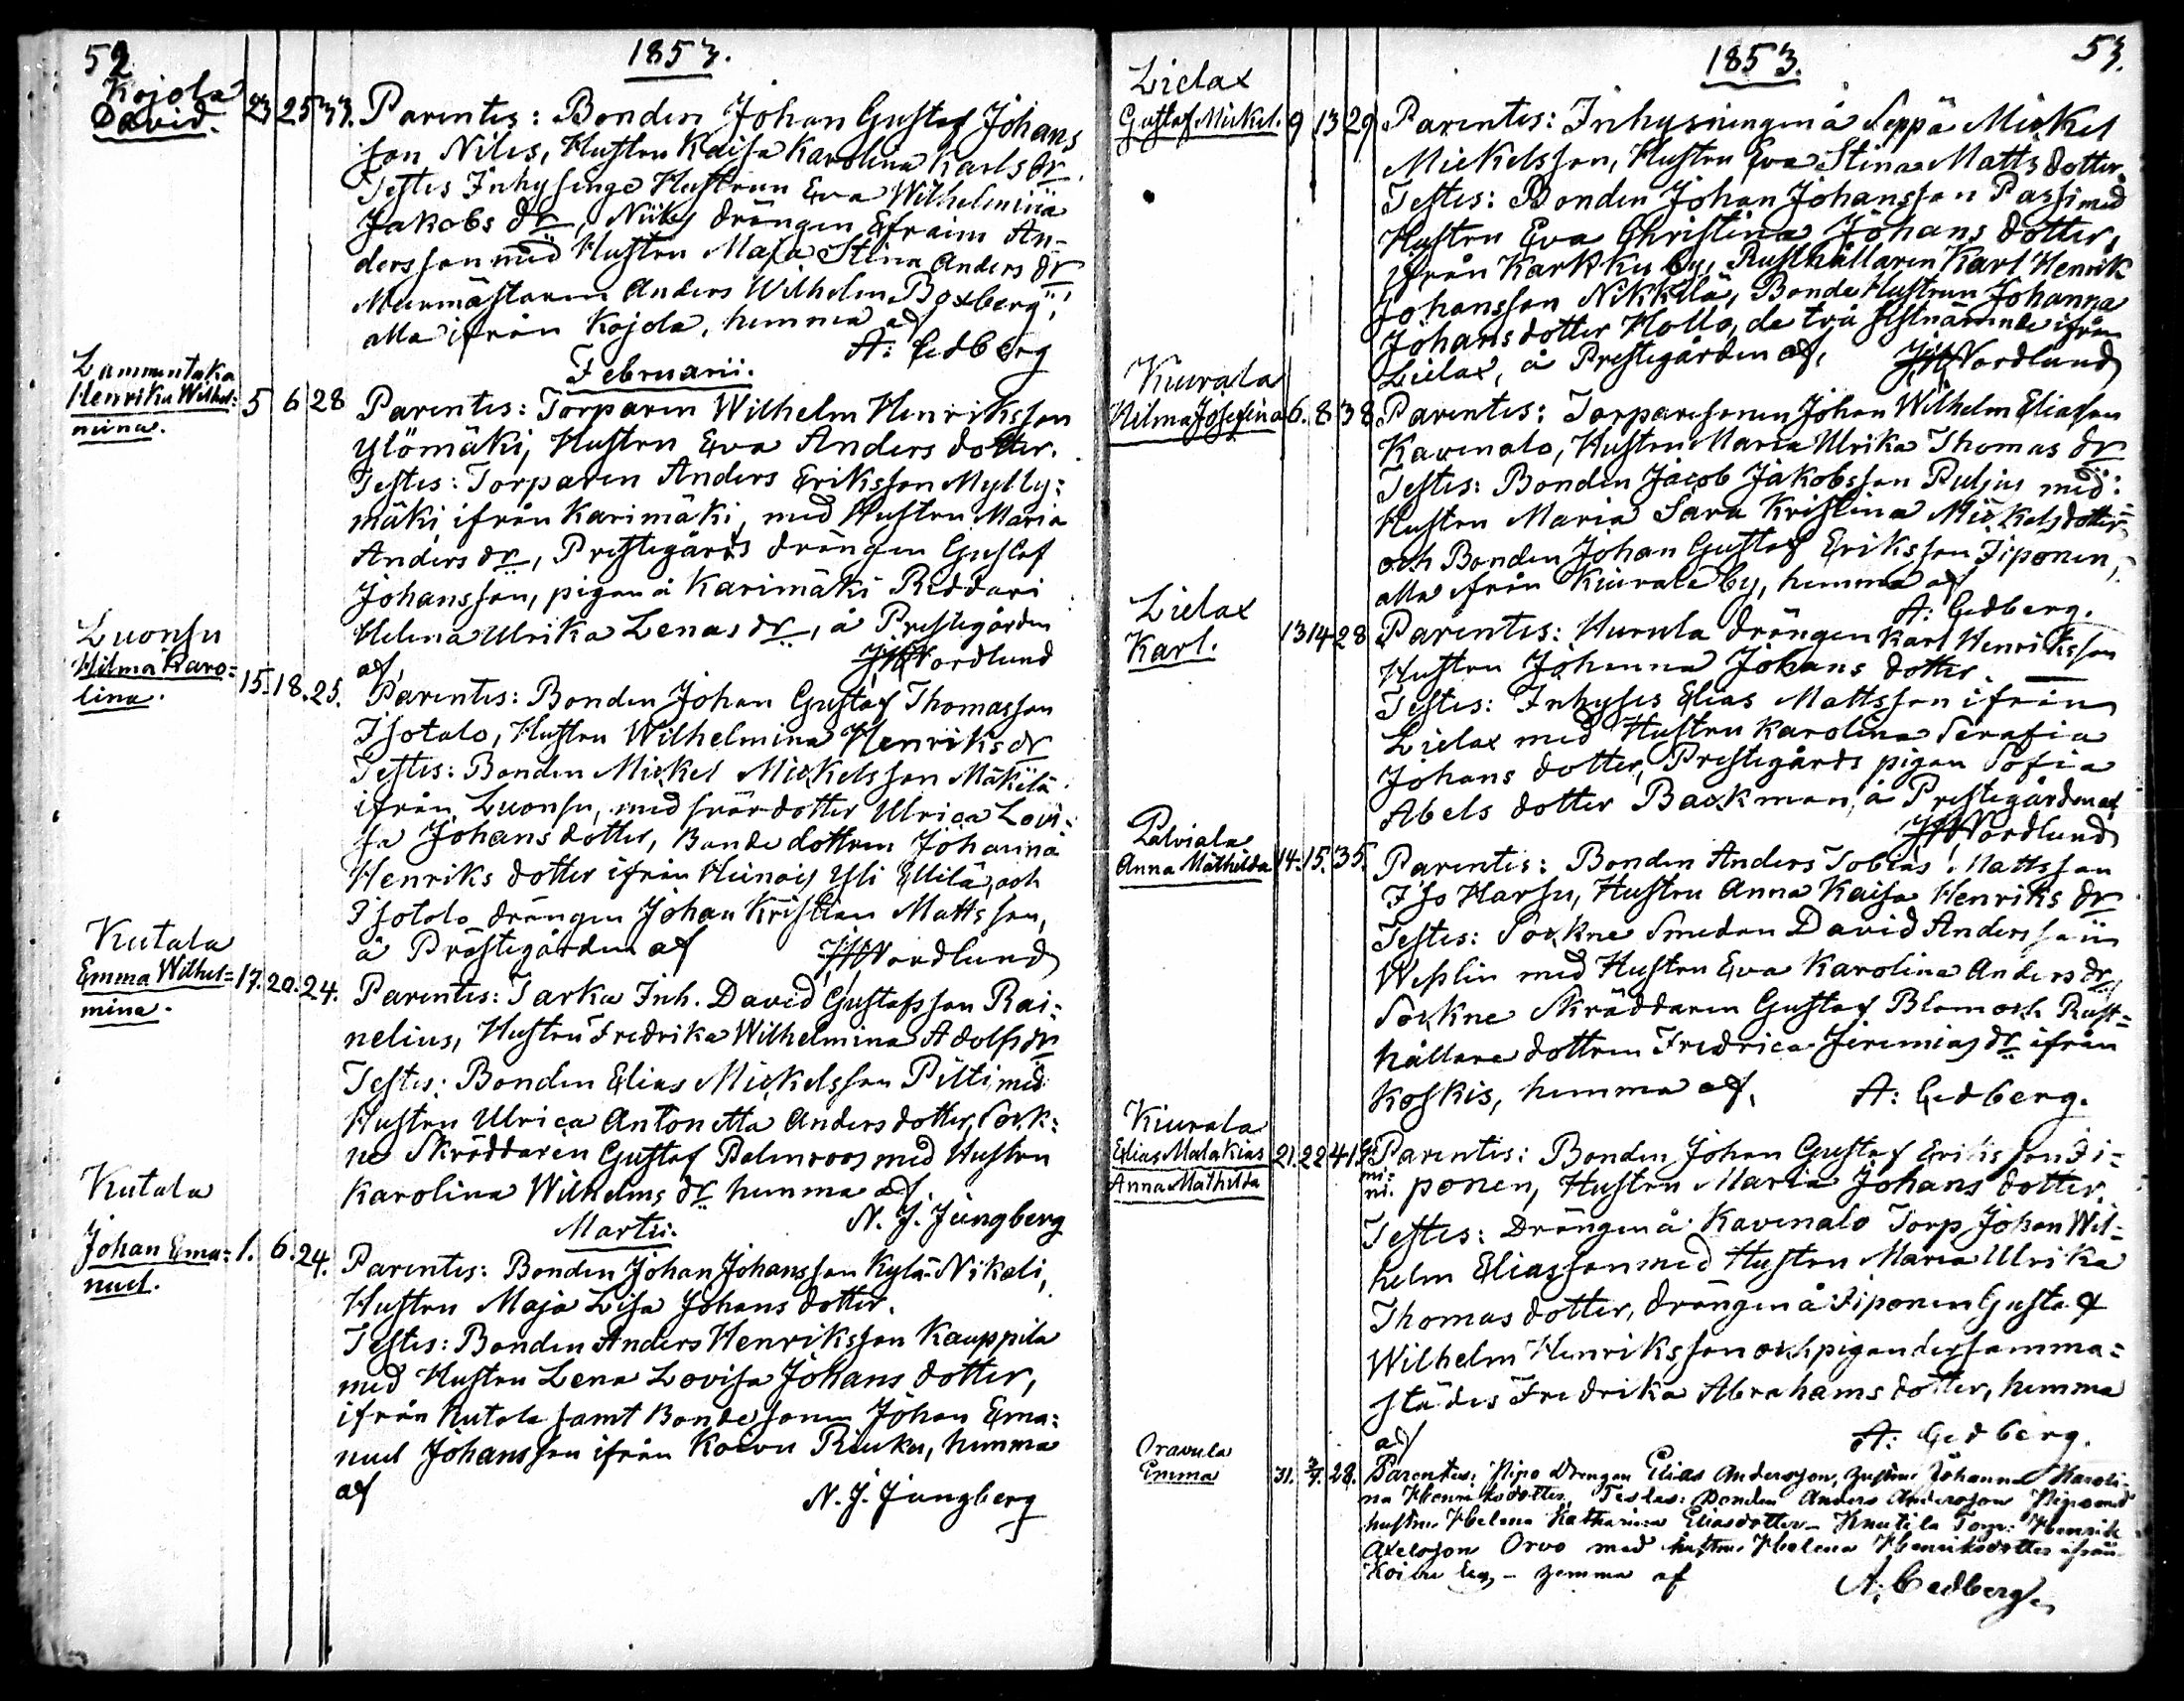 52
1853.
Kojola
David. 23 25 33. Parentes: Bonden Johan Gustaf Johans
son Niles, Hustru Kaisa Karolina Karls dr.
Testes Inhysinge Hustrun Eva Wilhelmina
Jakobs dr, Niles drängen Efraim An-
dersson med Hustru Maja Stina Anders dr
Murmästaren Anders Wilhelm Boxberg,
alla ifrån Kojola, hemma af
A: Cedberg
Februarii.
Lammentaka
Henrika Wilhel= 5 6 28 Parentes: Torparen Wilhelm Henriksson
mina.
Ylömäki, Hustru Eva Anders dotter.
Testes: Torparen Anders Eriksson Mylly=
mäki ifrån Karimäki, med Hustru Maria
Anders dr, Prestegårds drängen Gustaf
Johansson, pigan å Karimäki Riddari
Helena Ulrika Lenas dr, å Prestegården
af JH Nordlund
Luonsu
Hilma Karo= 15. 18. 25. Parentes: Bonden Johan Gustaf Thomasson
lina.
Isotalo, Hustru Wilhelmina Henriks dr
Testes: Bonden Mickel Mickelsson Mäkilä
ifrån Luonsu, med svärdotter Ulrica Lovi=
sa Johans dotter, Bonde dottren Johanna
Henriks dotter ifrån Heinois Yli Ellilä, och
Isotalo drängen Johan Kristian Mattsson,
å Prästegården af JH Nordlund
Kutala
Emma Wilhel= 17. 20. 24. Parentes: Tarka Inh. David Gustafsson Rai=
mina.
nelius, Hustru Fredrika Wilhelmina Adolfs dr
Testes: Bonden Elias Mickelsson Pilti med
Hustru Ulrica Antonetta Anders dotter, Sock=
ne Skräddaren Gustaf Palmroos med Hustru
Karolina Wilhelms dr hemma af
N. J. Jungberg
Martii.
Kutala
Johan Ema= 1. 6. 24. Parentes: Bonden Johan Johansson Kylä-Nikali,
nuel.
Hustru Maja Lisa Johans dotter.
Testes: Bonden Anders Henriksson Kauppila
med Hustru Lena Lovisa Johans dotter,
ifrån Kutala samt Bondesonen Johan Ema=
nuel Johansson ifrån Koivu Riuku, hemma
af
N. J. Jungberg
53.
1853.
Lielax
Gustaf Mickel. 9 13 29 Parentes: Inhysningen å Seppä Mickel
Mickelsson, Hustru Eva Stina Matts dotter.
Testes: Bonden Johan Johansson Passi med
Hustru Eva Christina Johans dotter,
ifrån Karkku by, Rusthållaren Karl Henrik
Johansson Nikkilä, Bonde Hustrun Johanna
Johansdotter Hollo, de två sistnämnde ifrån
Lielax, å Prestegården af, JH Nordlund
Kiurala
Hilma Josefina 6. 8. 38 Parentes: Torparesonen Johan Wilhelm Eliasson
Kavenalo, Hustru Maria Ulrika Thomas dr
Testes: Bonden Jacob Jakobsson Puljus med
Hustru Maria Sara Kristina Mickelsdotter
och Bonden Johan Gustaf Eriksson Tiponen,
alla ifrån Kiurala by, hemma af
A: Cedberg.
Lielax
Karl. 13 14 28 Parentes: Hurula drängen Karl Henriksson
Hustru Johanna Johans dotter.
Testes: Inhyses Elias Mattsson ifrån
Lielax med Hustru Karolina Serafia
Johans dotter, Prestegårds pigan Sofia
Abels dotter Backman, å Prestegården af
JH Nordlund
Palviala
Anna Mathilda 14. 15. 35. Parentes: Bonden Anders Tobias Mattsson
Iso Harsu, Hustru Anna Kaisa Henriks dr
Testes: Sockne Smeden David Andersson
Weslin med Hustru Eva Karolina Anders dr
Sockne Skräddaren Gustaf Blom och Rust=
hållare dottren Fredrica Jeremias dr ifrån
Koskis, hemma af, A: Cedberg.
Kiurala
Elias Malakias 21. 22 41 Ge Parentes: Bonden Johan Gustaf Eriksson Ti=
Anna Mathilda mi= ni. ponen, Hustru Maria Johans dotter.
Testes: Drängen å Kavenalo Torp Johan Wil=
helm Eliasson med Hustru Maria Ulrika
Thomas dotter, drängen å Tiponen Gustaf
Wilhelm Henriksson och pigan dersamma=
städes Fredrika Abrahams dotter, hemma
af A: Cedberg.
Oravula
Emma 31. 3/4. 28. Parentes: Pipo Drengen Elias Andersson, hustru Johanna Karoli-
na Henriksdotter, Testes: Bonden Anders Andersson Pipo med
hustru Helena Katharina Eliasdotter - Knutila Torp: Henrik
Axelsson Orvo med hustru Helena Henriksdotter ifrån
Koivu by, - hemma af A: Cedberg